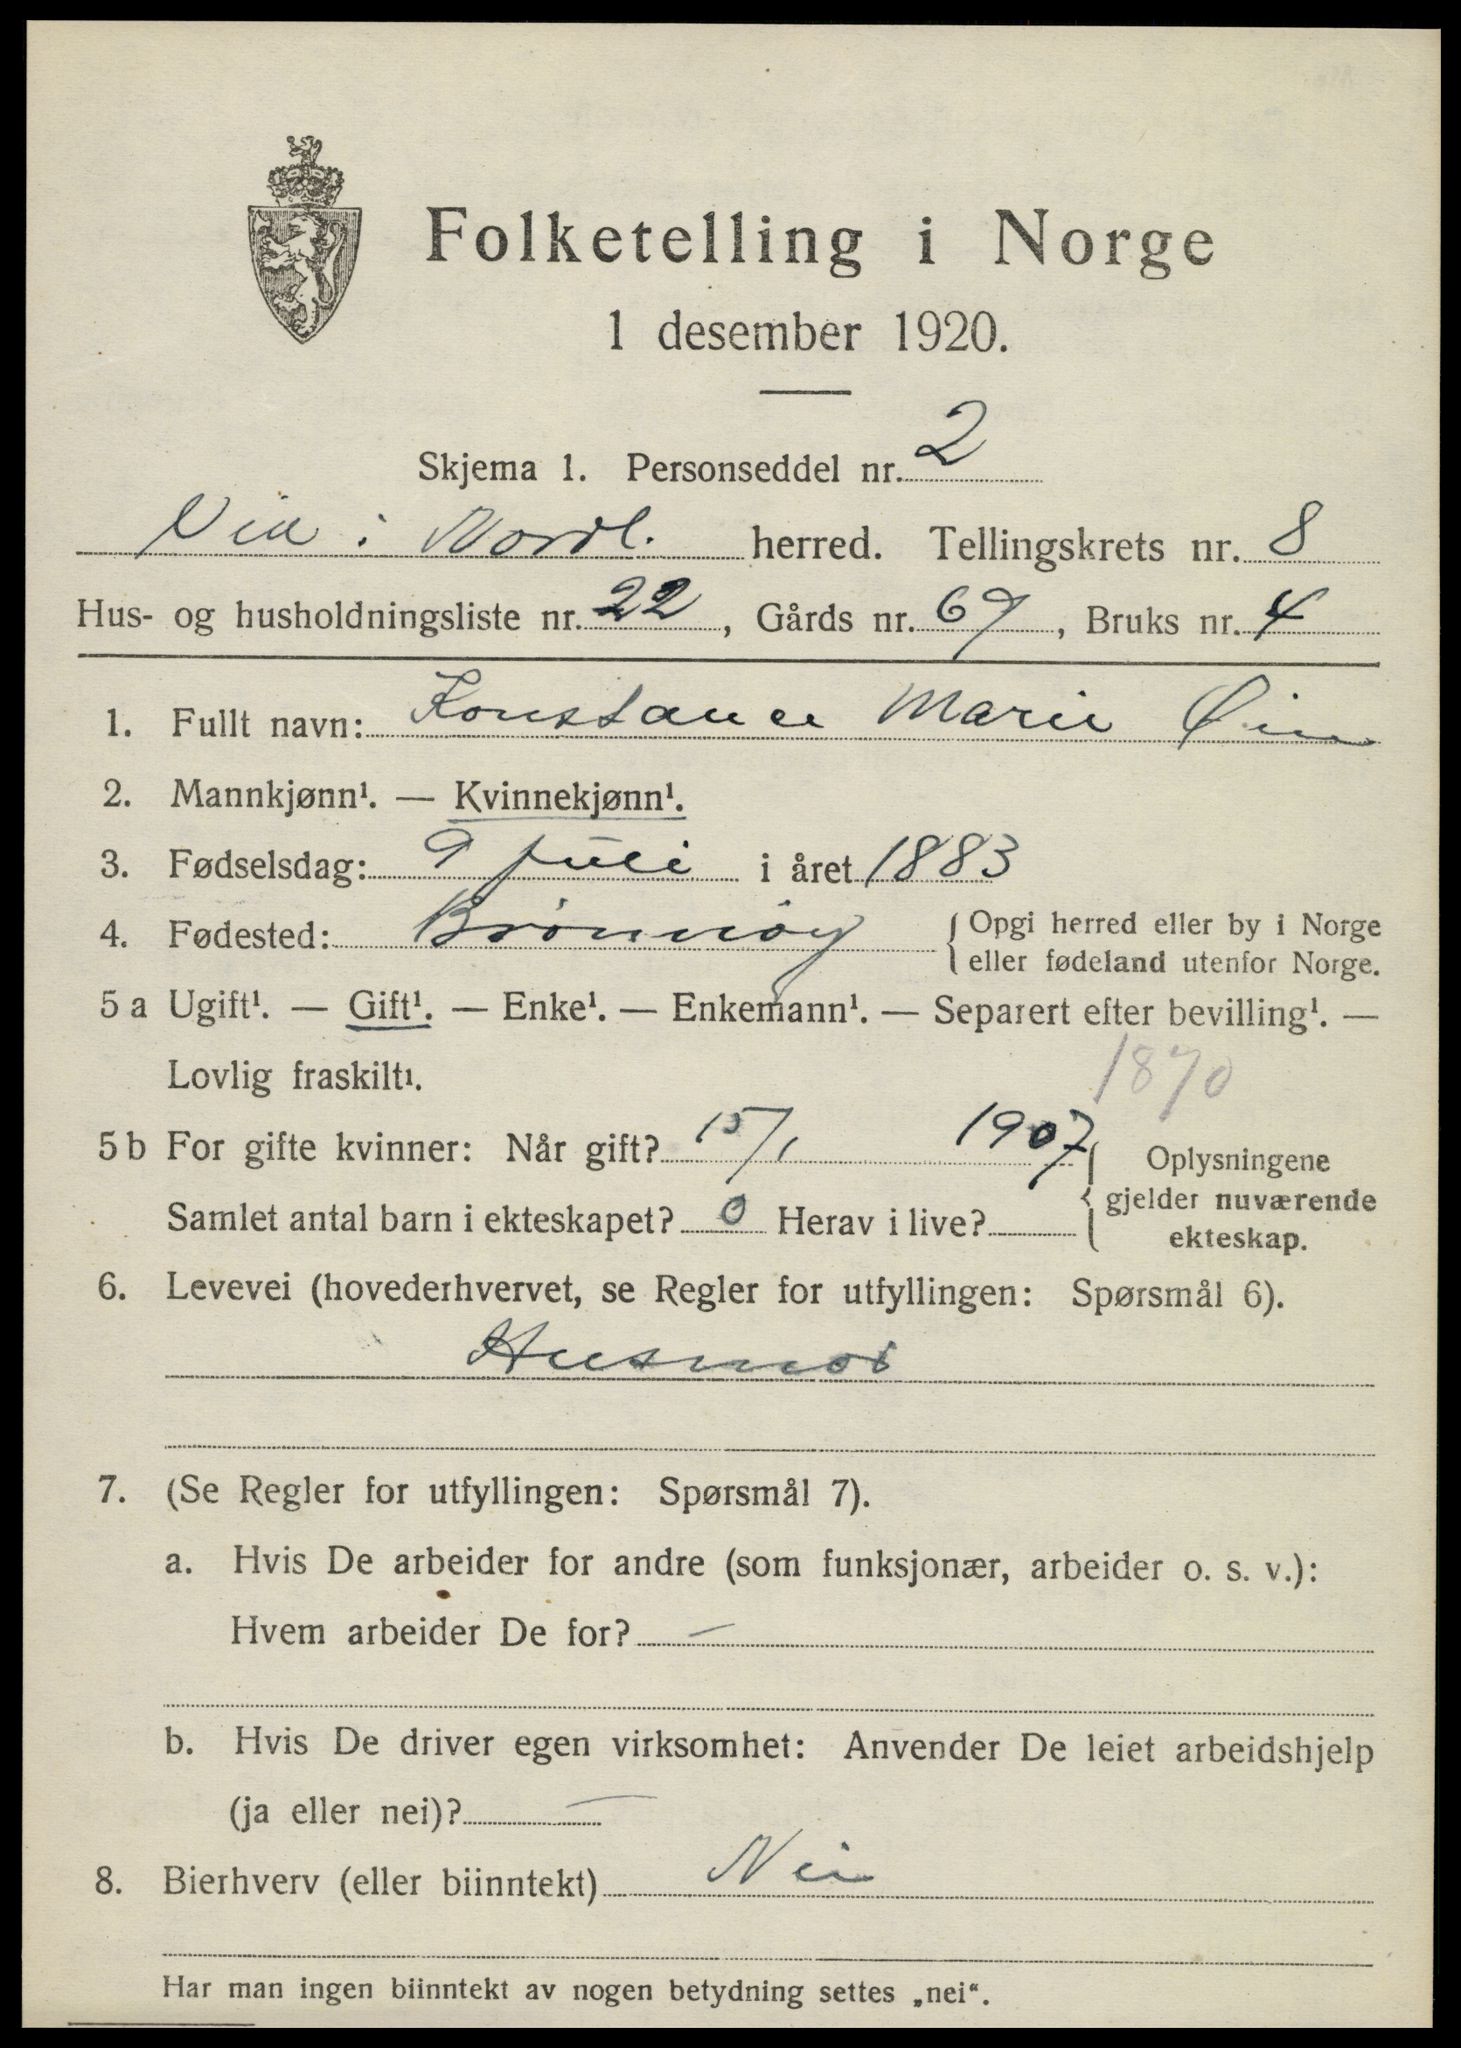 Folketelling i Norge
1 desember 1920.
Skjema 1. Personseddel nr. 2
Vik i Nordl. herred. Tellingskrets nr. 8
Hus- og husholdningsliste nr. 22, Gårds nr. 69, Bruks nr. 4
1. Fullt navn: Konstance Marie
2. Mannkjønn¹. — Kvinnekjønn¹.
3. Fødselsdag: 9 juli i året 1883
4. Fødested: Brönnöy { Opgi herred eller by i Norge
eller fødeland utenfor Norge.
5 a Ugift¹. — Gift¹. — Enke¹. — Enkemann¹. — Separert efter bevilling¹. —
Lovlig fraskilt¹.
1870
5 b For gifte kvinner: Når gift? 15/1 1907 { Oplysningene
Samlet antal barn i ekteskapet? 0 Herav i live? gjelder nuværende
ekteskap.
6. Levevei (hovederhvervet, se Regler for utfyllingen: Spørsmål 6).
Husmor
7. (Se Regler for utfyllingen: Spørsmål 7).
a. Hvis De arbeider for andre (som funksjonær, arbeider o. s. v.):
Hvem arbeider De for? —
b. Hvis De driver egen virksomhet: Anvender De leiet arbeidshjelp
(ja eller nei)? —
8. Bierhverv (eller biinntekt) Nei
Har man ingen biinntekt av nogen betydning settes „nei“.